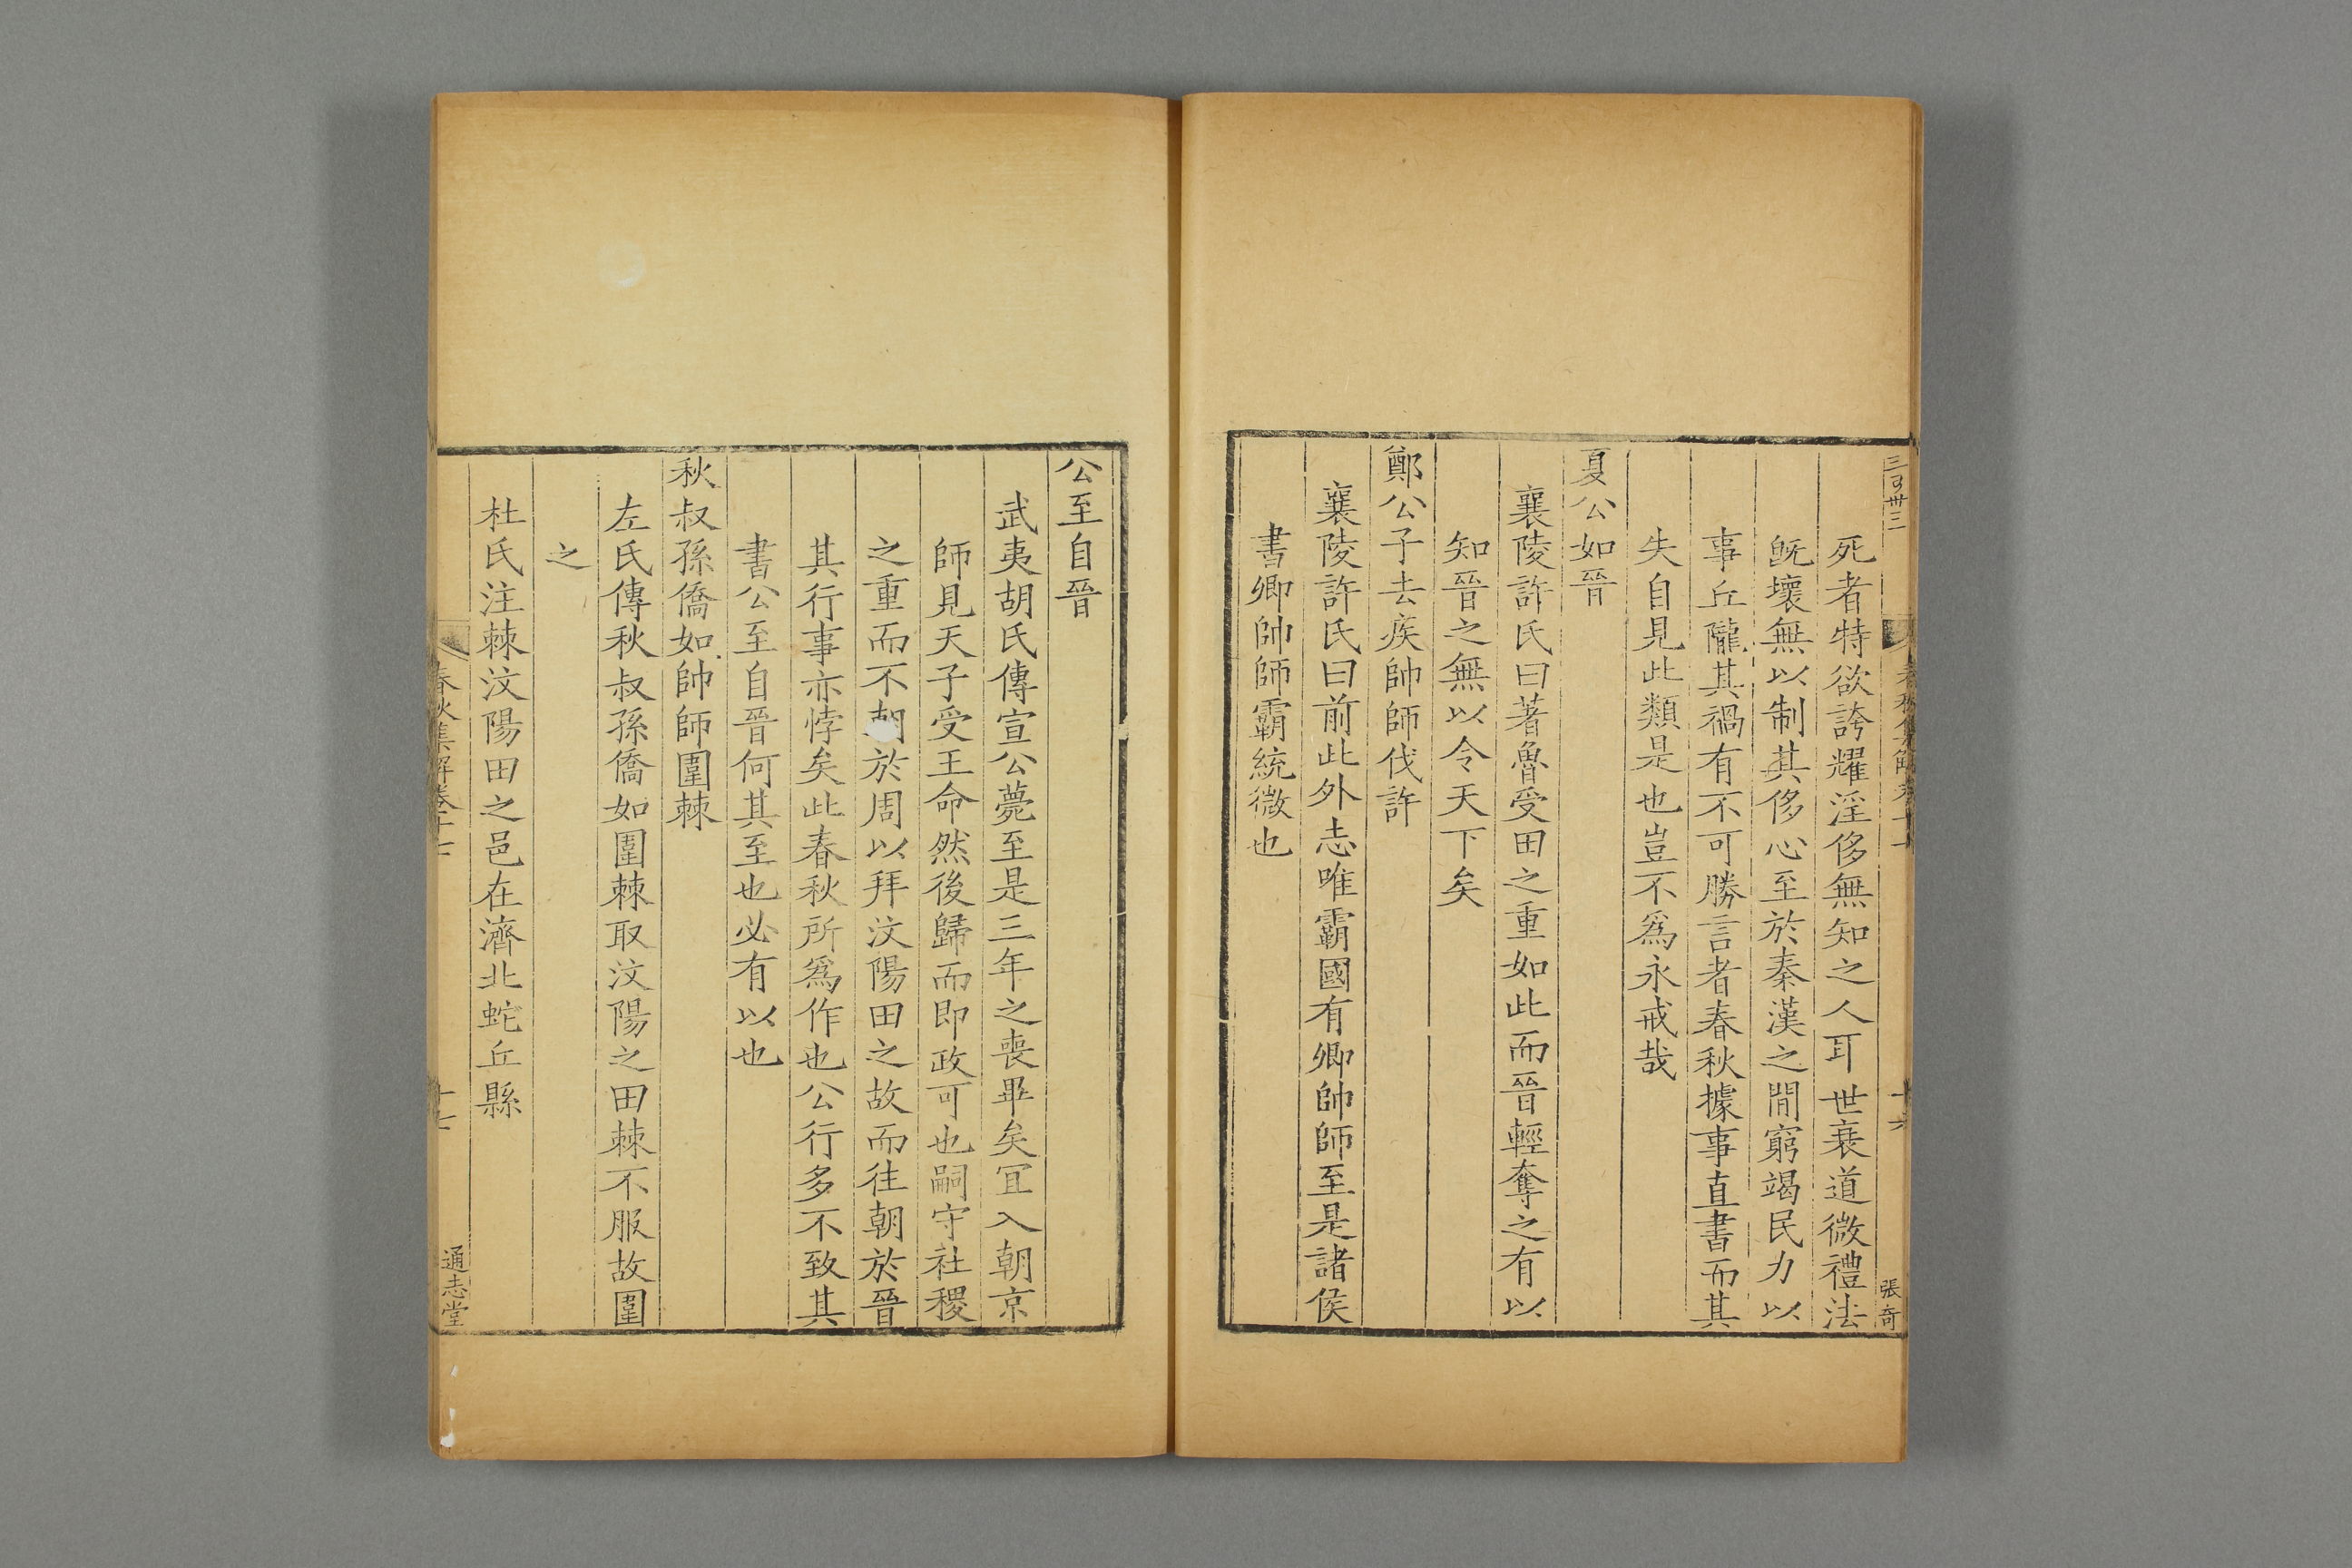 三百卅三
春秋集解卷十七
十六
張奇
死者特欲誇耀淫侈無知之人耳世衰道微禮法
旣壞無以制其侈心至於秦漢之閒窮竭民力以
事丘隴其禍有不可勝言者春秋據事直書而其
失自見此類是也豈不爲永戒哉
夏公如晉
襄陵許氏曰著魯受田之重如此而晉輕奪之有以
知晉之無以令天下矣
鄭公子去疾帥師伐許
襄陵許氏曰前此外志唯霸國有卿帥師至是諸侯
書卿帥師霸統微也
公至自晉
武夷胡氏傳宣公薨至是三年之喪畢矣宜入朝京
師見天子受王命然後歸而即政可也嗣守社稷
之重而不朝於周以拜汶陽田之故而往朝於晉
其行事亦悖矣此春秋所爲作也公行多不致其
書公至自晉何其至也必有以也
秋叔孫僑如帥師圍棘
左氏傳秋叔孫僑如圍棘取汶陽之田棘不服故圍
之
杜氏注棘汶陽田之邑在濟北蛇丘縣
春秋集解卷十七
十七
通志堂